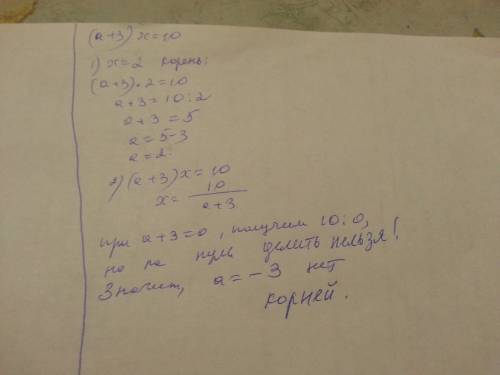 (a+3)x=10
1) x=2 корень:
(a+3)·2=10
a+3=10:2
a+3=5
a=5-3
a=2.
2) (a+3)x=10
x= 10/a+3
при a+3=0, получим 10:0,
но на нуль делить нельзя!
Значит, a=-3 нет
корней.